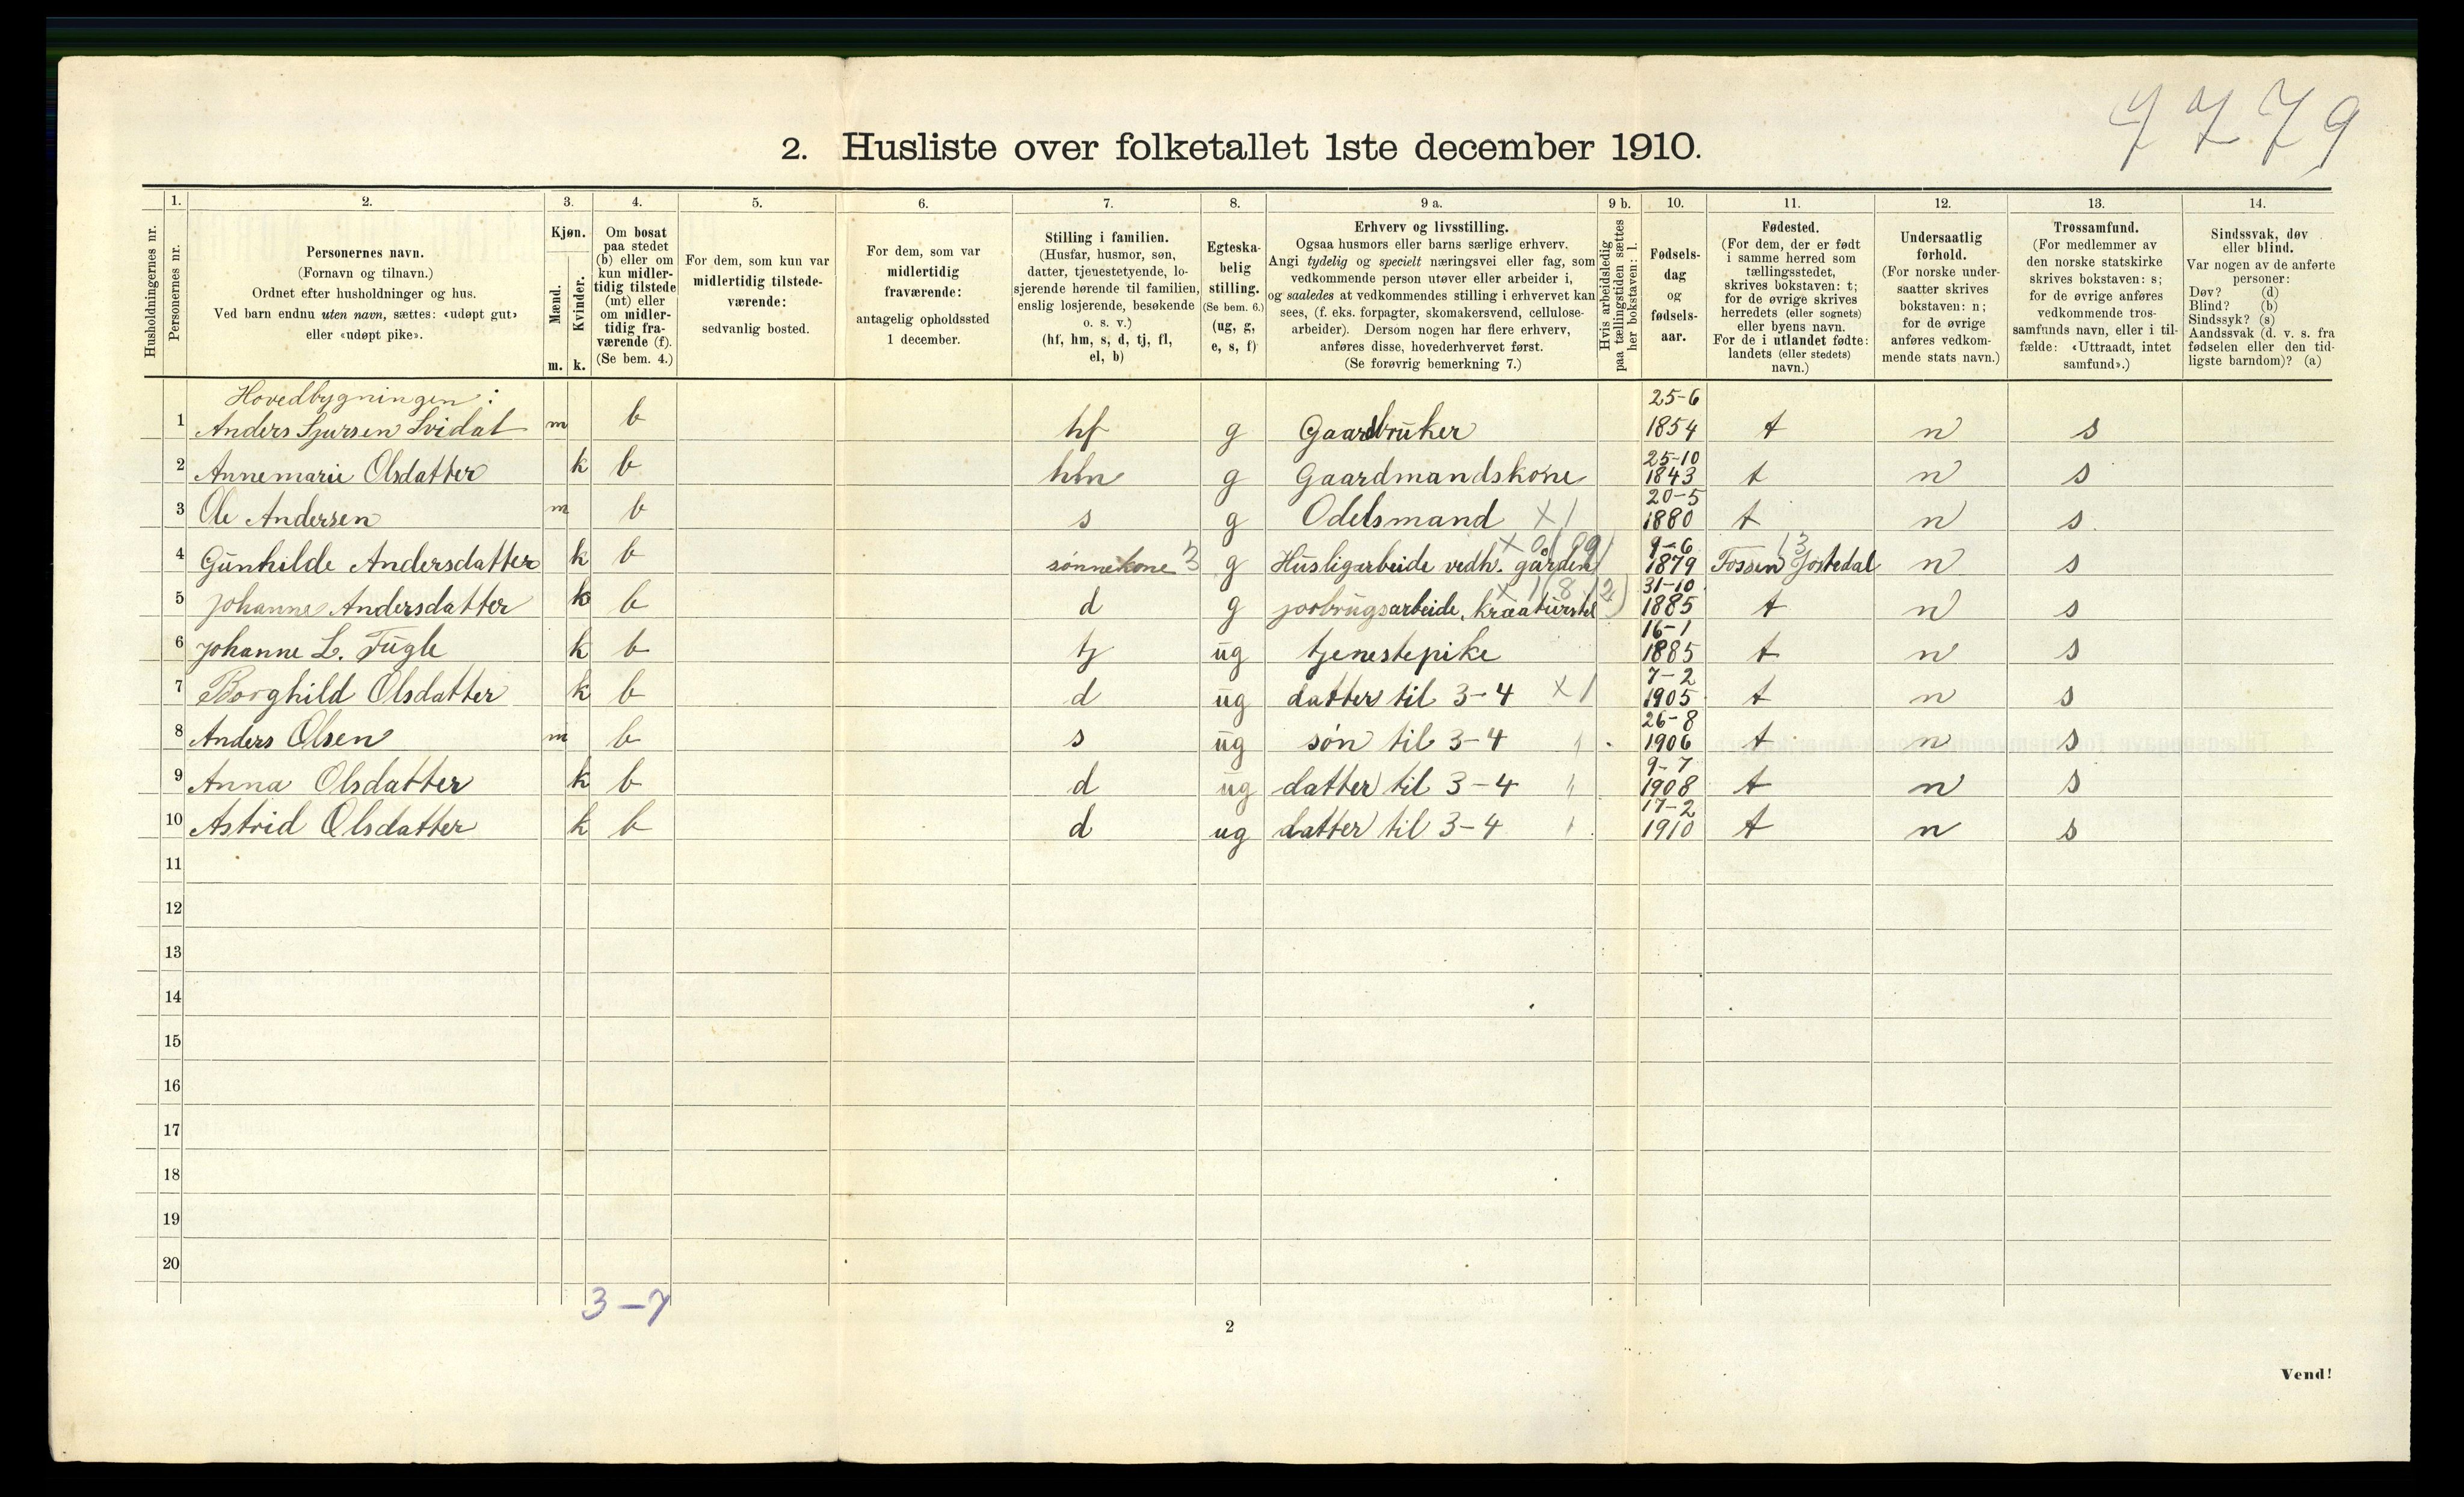 7779
2. Husliste over folketallet 1ste december 1910.
1. 2. 3. 4. 5. 6. 7. 8. 9 a. 9 b. 10. 11. 12. 13. 14.
Husholdningernes nr.
Personernes nr.
Personernes navn.
(Fornavn og tilnavn.)
Ordnet efter husholdninger og hus.
Ved barn endnu uten navn, sættes: «udøpt gut»
eller «udøpt pike».
Kjøn.
Mænd.
Kvinder.
m. k.
Om bosat
paa stedet
(b) eller om
kun midler-
tidig tilstede
(mt) eller
om midler-
tidig fra-
værende (f).
(Se bem. 4.)
For dem, som kun var
midlertidig tilstede-
værende:
sedvanlig bosted.
For dem, som var
midlertidig
fraværende:
antagelig opholdssted
1 december.
Stilling i familien.
(Husfar, husmor, søn,
datter, tjenestetyende, lo-
sjerende hørende til familien,
enslig losjerende, besøkende
o. s. v.)
(hf, hm, s, d, tj, fl,
el, b)
Egteska-
belig
stilling.
(Se bem. 6.)
(ug, g,
e, s, f)
Erhverv og livsstilling.
Ogsaa husmors eller barns særlige erhverv.
Angi tydelig og specielt næringsvei eller fag, som
vedkommende person utøver eller arbeider i,
og saaledes at vedkommendes stilling i erhvervet kan
sees, (f. eks. forpagter, skomakersvend, cellulose-
arbeider). Dersom nogen har flere erhverv,
anføres disse, hovederhvervet først.
(Se forøvrig bemerkning 7.)
Hvis arbeidsledig
paa tællingstiden sættes
her bokstaven: l.
Fødsels-
dag
og
fødsels-
aar.
Fødested.
(For dem, der er født
i samme herred som
tællingsstedet,
skrives bokstaven: t;
for de øvrige skrives
herredets (eller sognets)
eller byens navn.
For de i utlandet fødte:
landets (eller stedets)
navn.)
Undersaatlig
forhold.
(For norske under-
saatter skrives
bokstaven: n;
for de øvrige
anføres vedkom-
mende stats navn.)
Trossamfund.
(For medlemmer av
den norske statskirke
skrives bokstaven: s;
for de øvrige anføres
vedkommende tros-
samfunds navn, eller i til-
fælde: «Uttraadt, intet
samfund».)
Sindssvak, døv
eller blind.
Var nogen av de anførte
personer:
Døv? (d)
Blind? (b)
Sindssyk? (s)
Aandssvak (d. v. s. fra
fødselen eller den tid-
ligste barndom)? (a)
Hovedbygningen:
1 Anders Sjursen Svidal m b hf g Gaardbruker 25-6 1854 t n s
2 Annemarie Olsdatter k b hm g Gaardmandskone 25-10 1843 t n s
3 Ole Andersen m b s g Odelsmand X 1 20-5 1880 t n s
4 Gunhilde Andersdatter k b sønnekone 3 g Husligarbeide vedk. gården 9-6 1879 Fossen Jostedal 13 n s
5 Johanne Andersdatter k b d g jorbrugsarbeide, kreaturstel 31-10 1885 t n s
6 Johanne L. Fugle k b tj ug tjenestepike 16-1 1885 t n s
7 Borghild Olsdatter k b d ug datter til 3-4 X 1 7-2 1905 t n s
8 Anders Olsen m b s ug søn til 3-4 26-8 1906 t n s
9 Anna Olsdatter k b d ug datter til 3-4 9-7 1908 t n s
10 Astrid Olsdatter k b d ug datter til 3-4 17-2 1910 t n s
11
12
13
14
15
16
17
18
19
20
3-7
2
Vend!